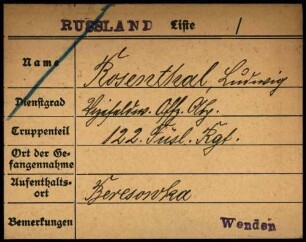 RUSSLAND Liste 1
Name Rosenthal, Ludwig
Dienstgrad Vizefeldw. Offz. Asp.
Truppenteil 122. Füsl. Rgt.
Ort der Ge-
fangennahme
Aufenthalts-
ort Beresowka
Bemerkungen Wenden